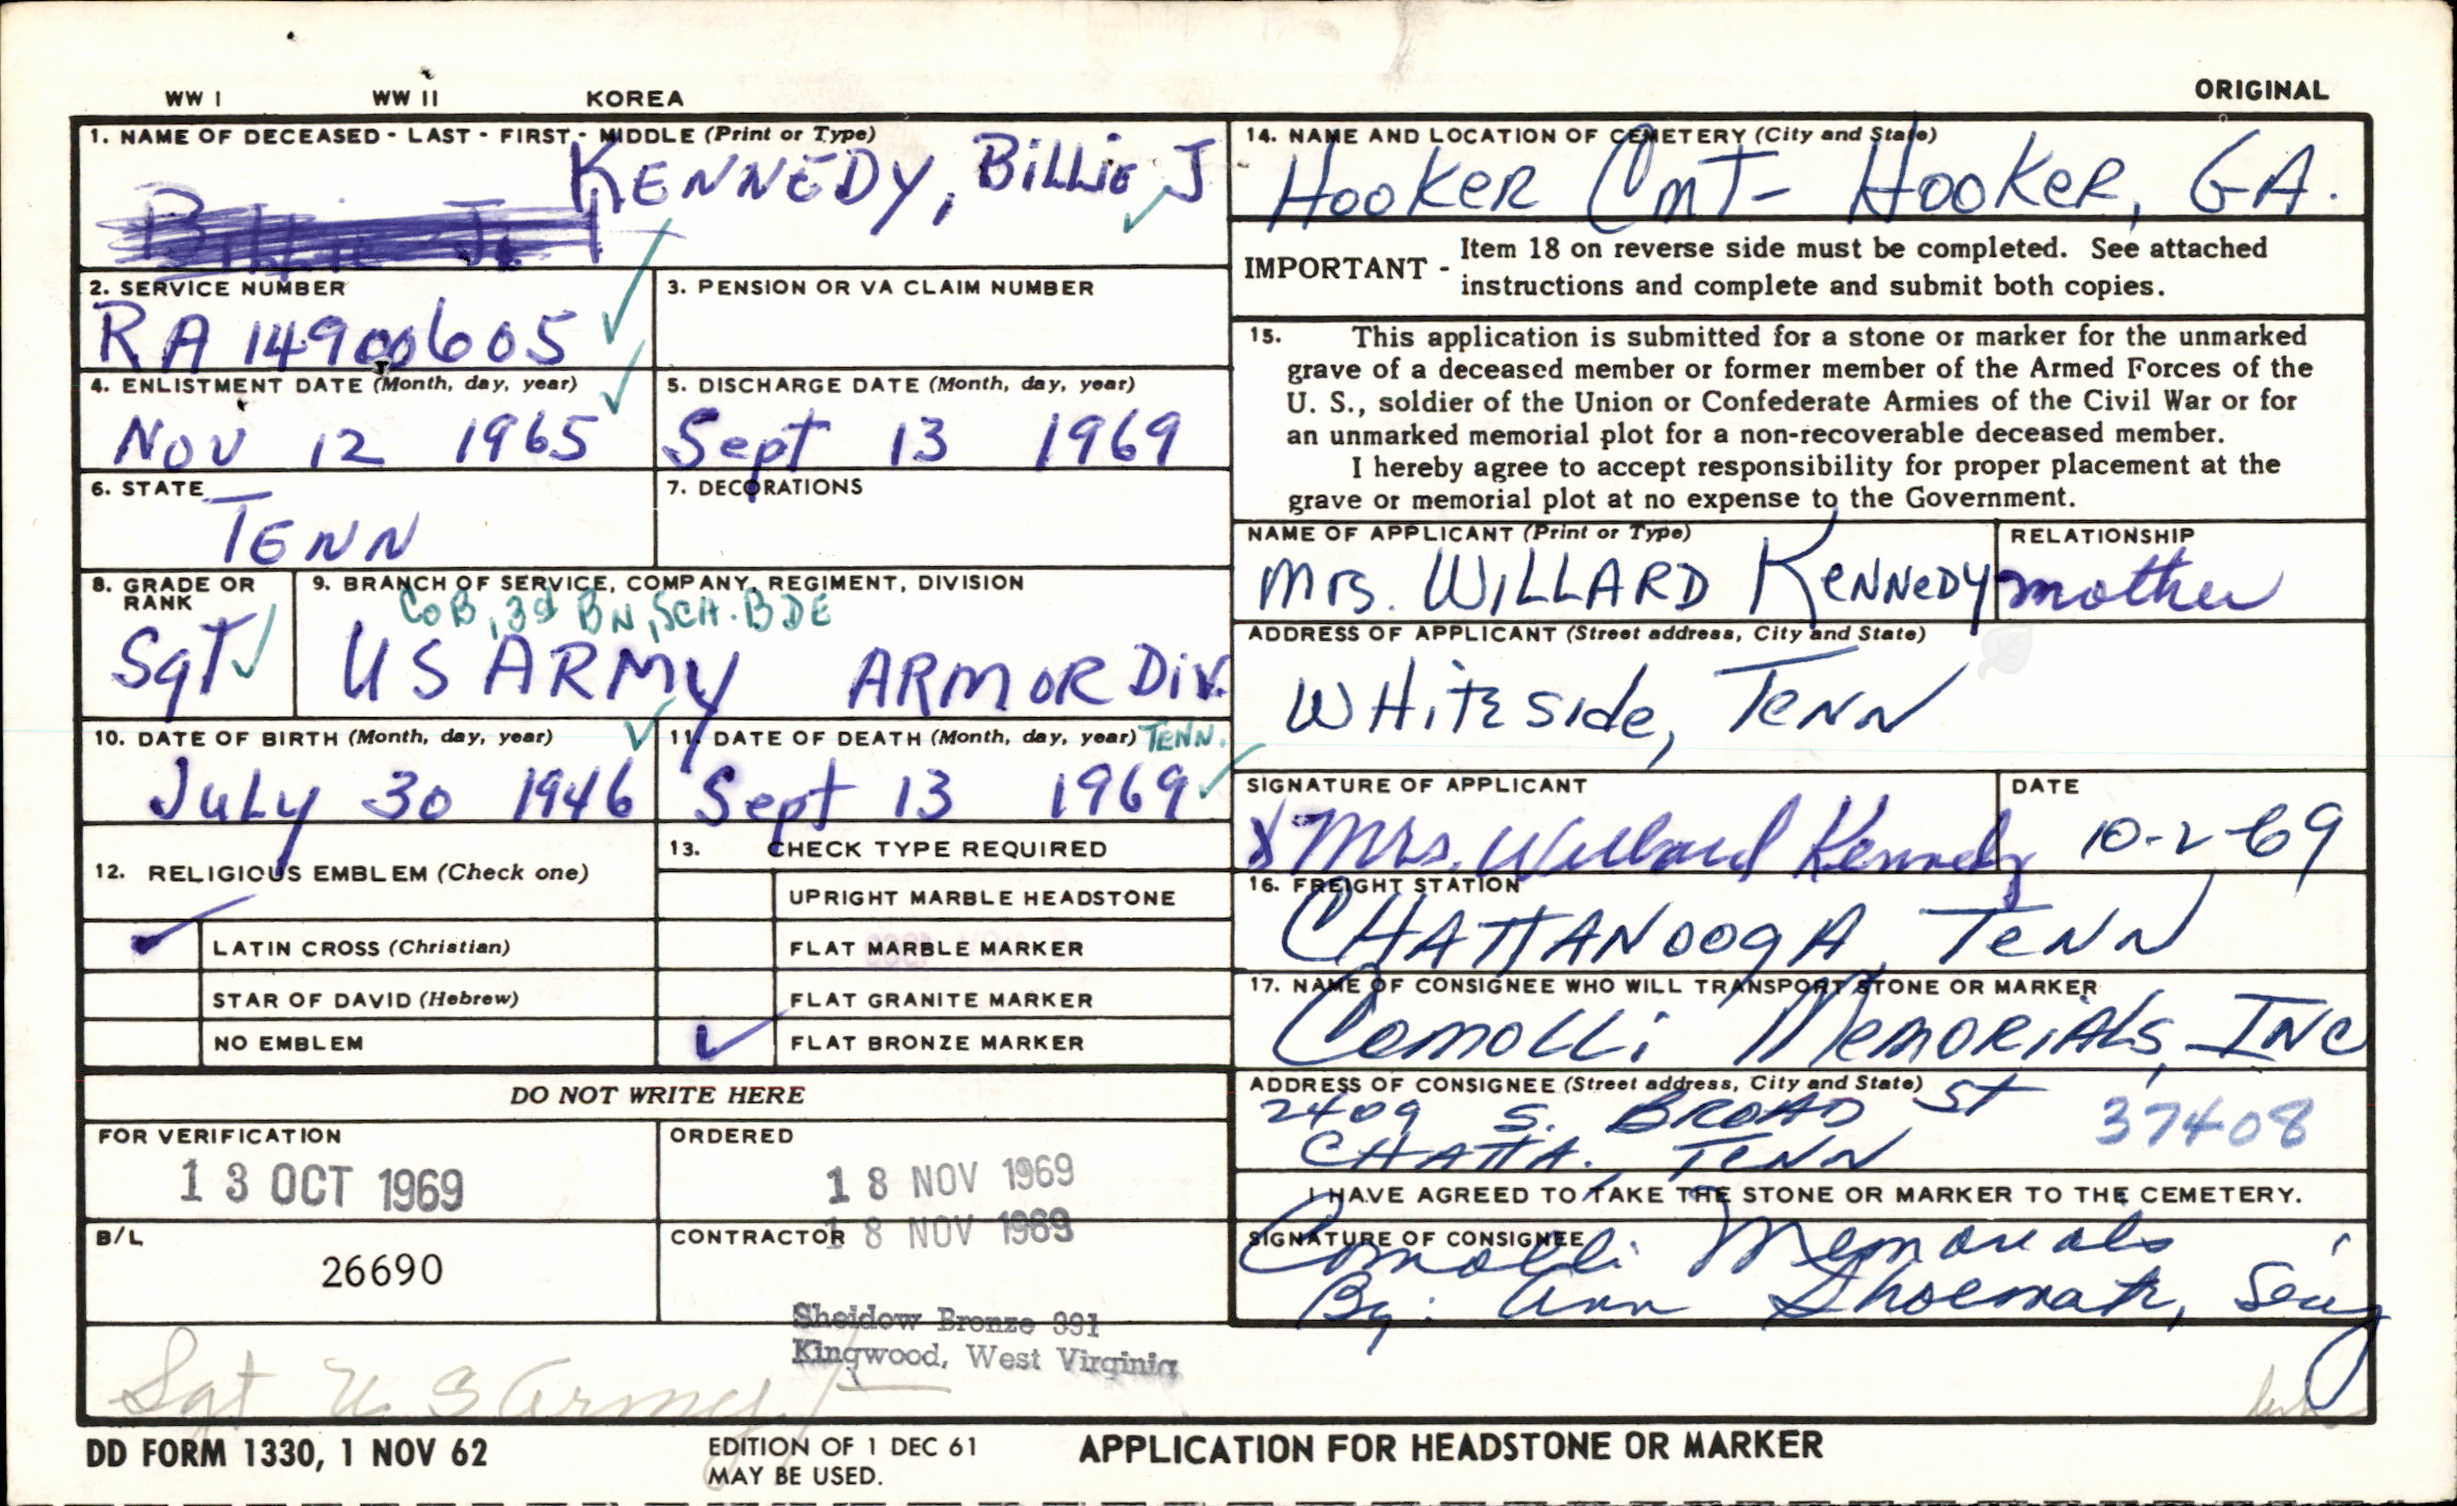 WW I WW II KOREA ORIGINAL
1. NAME OF DECEASED - LAST - FIRST - MIDDLE (Print or Type)
KENNEDY, BILLIE J
2. SERVICE NUMBER
RA 14900605
3. PENSION OR VA CLAIM NUMBER
4. ENLISTMENT DATE (Month, day, year)
Nov 12 1965
5. DISCHARGE DATE (Month, day, year)
Sept 13 1969
6. STATE
TENN
7. DECORATIONS
8. GRADE OR
RANK
Sgt
9. BRANCH OF SERVICE, COMPANY, REGIMENT, DIVISION
CO B, 3d BN, SCH. BDE
US ARMY ARMOR Div.
10. DATE OF BIRTH (Month, day, year)
July 30 1946
11. DATE OF DEATH (Month, day, year) TENN.
Sept 13 1969
12. RELIGIOUS EMBLEM (Check one)
LATIN CROSS (Christian)
STAR OF DAVID (Hebrew)
NO EMBLEM
13. CHECK TYPE REQUIRED
UPRIGHT MARBLE HEADSTONE
FLAT MARBLE MARKER
FLAT GRANITE MARKER
FLAT BRONZE MARKER
DO NOT WRITE HERE
FOR VERIFICATION
13 OCT 1969
ORDERED
18 NOV 1969
B/L
26690
CONTRACTOR
18 NOV 1969
Sheidow Bronze 391
Kingwood, West Virginia
Sgt U S Army
14. NAME AND LOCATION OF CEMETERY (City and State)
HOOKER CMT- HOOKER, GA.
IMPORTANT - Item 18 on reverse side must be completed. See attached
instructions and complete and submit both copies.
15. This application is submitted for a stone or marker for the unmarked
grave of a deceased member or former member of the Armed Forces of the
U. S., soldier of the Union or Confederate Armies of the Civil War or for
an unmarked memorial plot for a non-recoverable deceased member.
I hereby agree to accept responsibility for proper placement at the
grave or memorial plot at no expense to the Government.
NAME OF APPLICANT (Print or Type)
Mrs. WILLARD KENNEDY
RELATIONSHIP
mother
ADDRESS OF APPLICANT (Street address, City and State)
WHITESIDE, TENN
SIGNATURE OF APPLICANT
X Mrs. Willard Kennedy
DATE
10-2-69
16. FREIGHT STATION
CHATTANOOGA, TENN
17. NAME OF CONSIGNEE WHO WILL TRANSPORT STONE OR MARKER
COMOLLI MEMORIALS, INC
ADDRESS OF CONSIGNEE (Street address, City and State)
2409 S. BROAD ST 37408
CHATTA., TENN
I HAVE AGREED TO TAKE THE STONE OR MARKER TO THE CEMETERY.
SIGNATURE OF CONSIGNEE
Comolli Memorials
By: Ann
DD FORM 1330, 1 NOV 62
EDITION OF 1 DEC 61
MAY BE USED.
APPLICATION FOR HEADSTONE OR MARKER